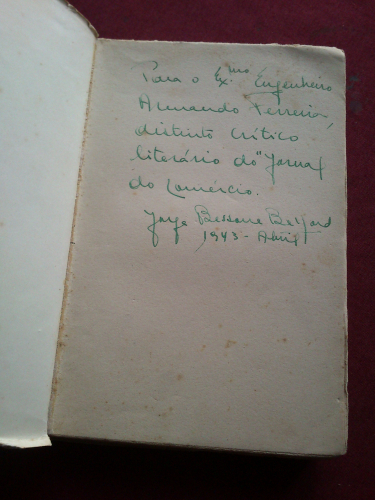 Para o Ex.mo Engenheiro
Armando Ferreira,
distinto crítico
literário do "Jornal
do Comércio.
Jorge Bessone Basto
1943 - Abril